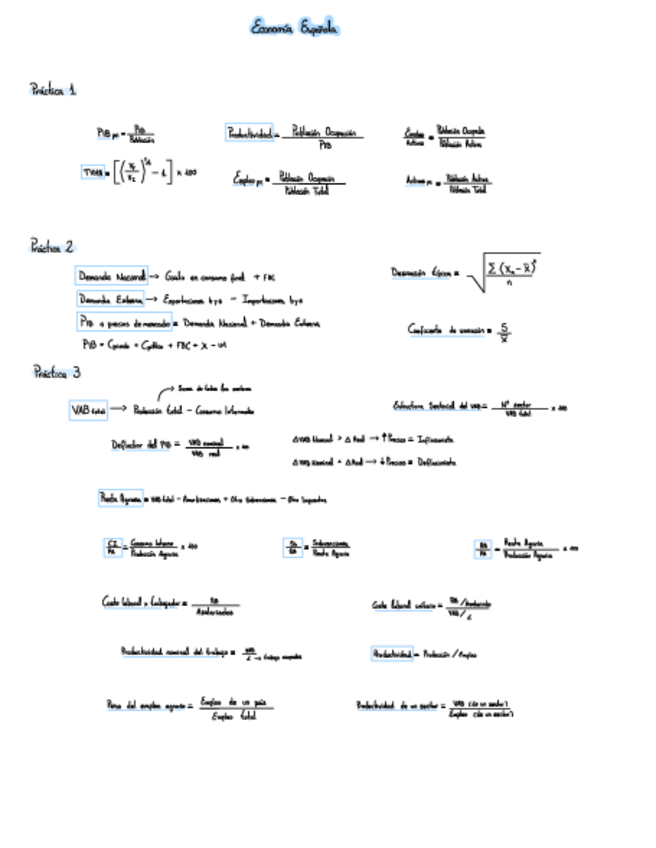 Economía Española
Práctica 1
PIB pc = PIB / Población
Productividad = Población Ocupación / PIB
Empleo / Activos = Población Ocupada / Población Activa
TVMA = [( / )  - 1] x 100
Empleo pc = Población Ocupación / Población Total
Activos pc = Población Activa / Población Total
Práctica 2
Demanda Nacional → Gasto en consumo final + FBC
Demanda Externa → Exportaciones bys - Importaciones bys
PIB a precios de mercado = Demanda Nacional + Demanda Externa
PIB = Cprivado + Cpúblico + FBC + X - M
Desviación típica = √ Σ (Xn - x̄)² / n
Coeficiente de variación = S / x̄
Práctica 3
Suma de todos los sectores
VAB total → Producción total - Consumo Intermedio
Estructura Sectorial del VAB = Nº sector / VAB total x 100
Deflactor del PIB = VAB nominal / VAB real x 100
Δ VAB Nominal > Δ Real → ↑ Precios = Inflacionista
Δ VAB Nominal < Δ Real → ↓ Precios = Deflacionista
Renta Agraria = VAB total - Amortizaciones + Otras Subvenciones - Otros Impuestos
CI / PA = Consumo Interno / Producción Agraria x 100
Sb / RA = Subvenciones / Renta Agraria
RA / PA = Renta Agraria / Producción Agraria x 100
Coste laboral x trabajador = RA / Asalariados
Coste laboral unitario = RA / Asalariado / VAB / E
Productividad nominal del trabajo = VAB / E → trabajo
Productividad = Producción / Empleo
Peso del empleo agrario = Empleo de un país / Empleo total
Productividad de un sector = VAB (de un sector) / Empleo (de un sector)